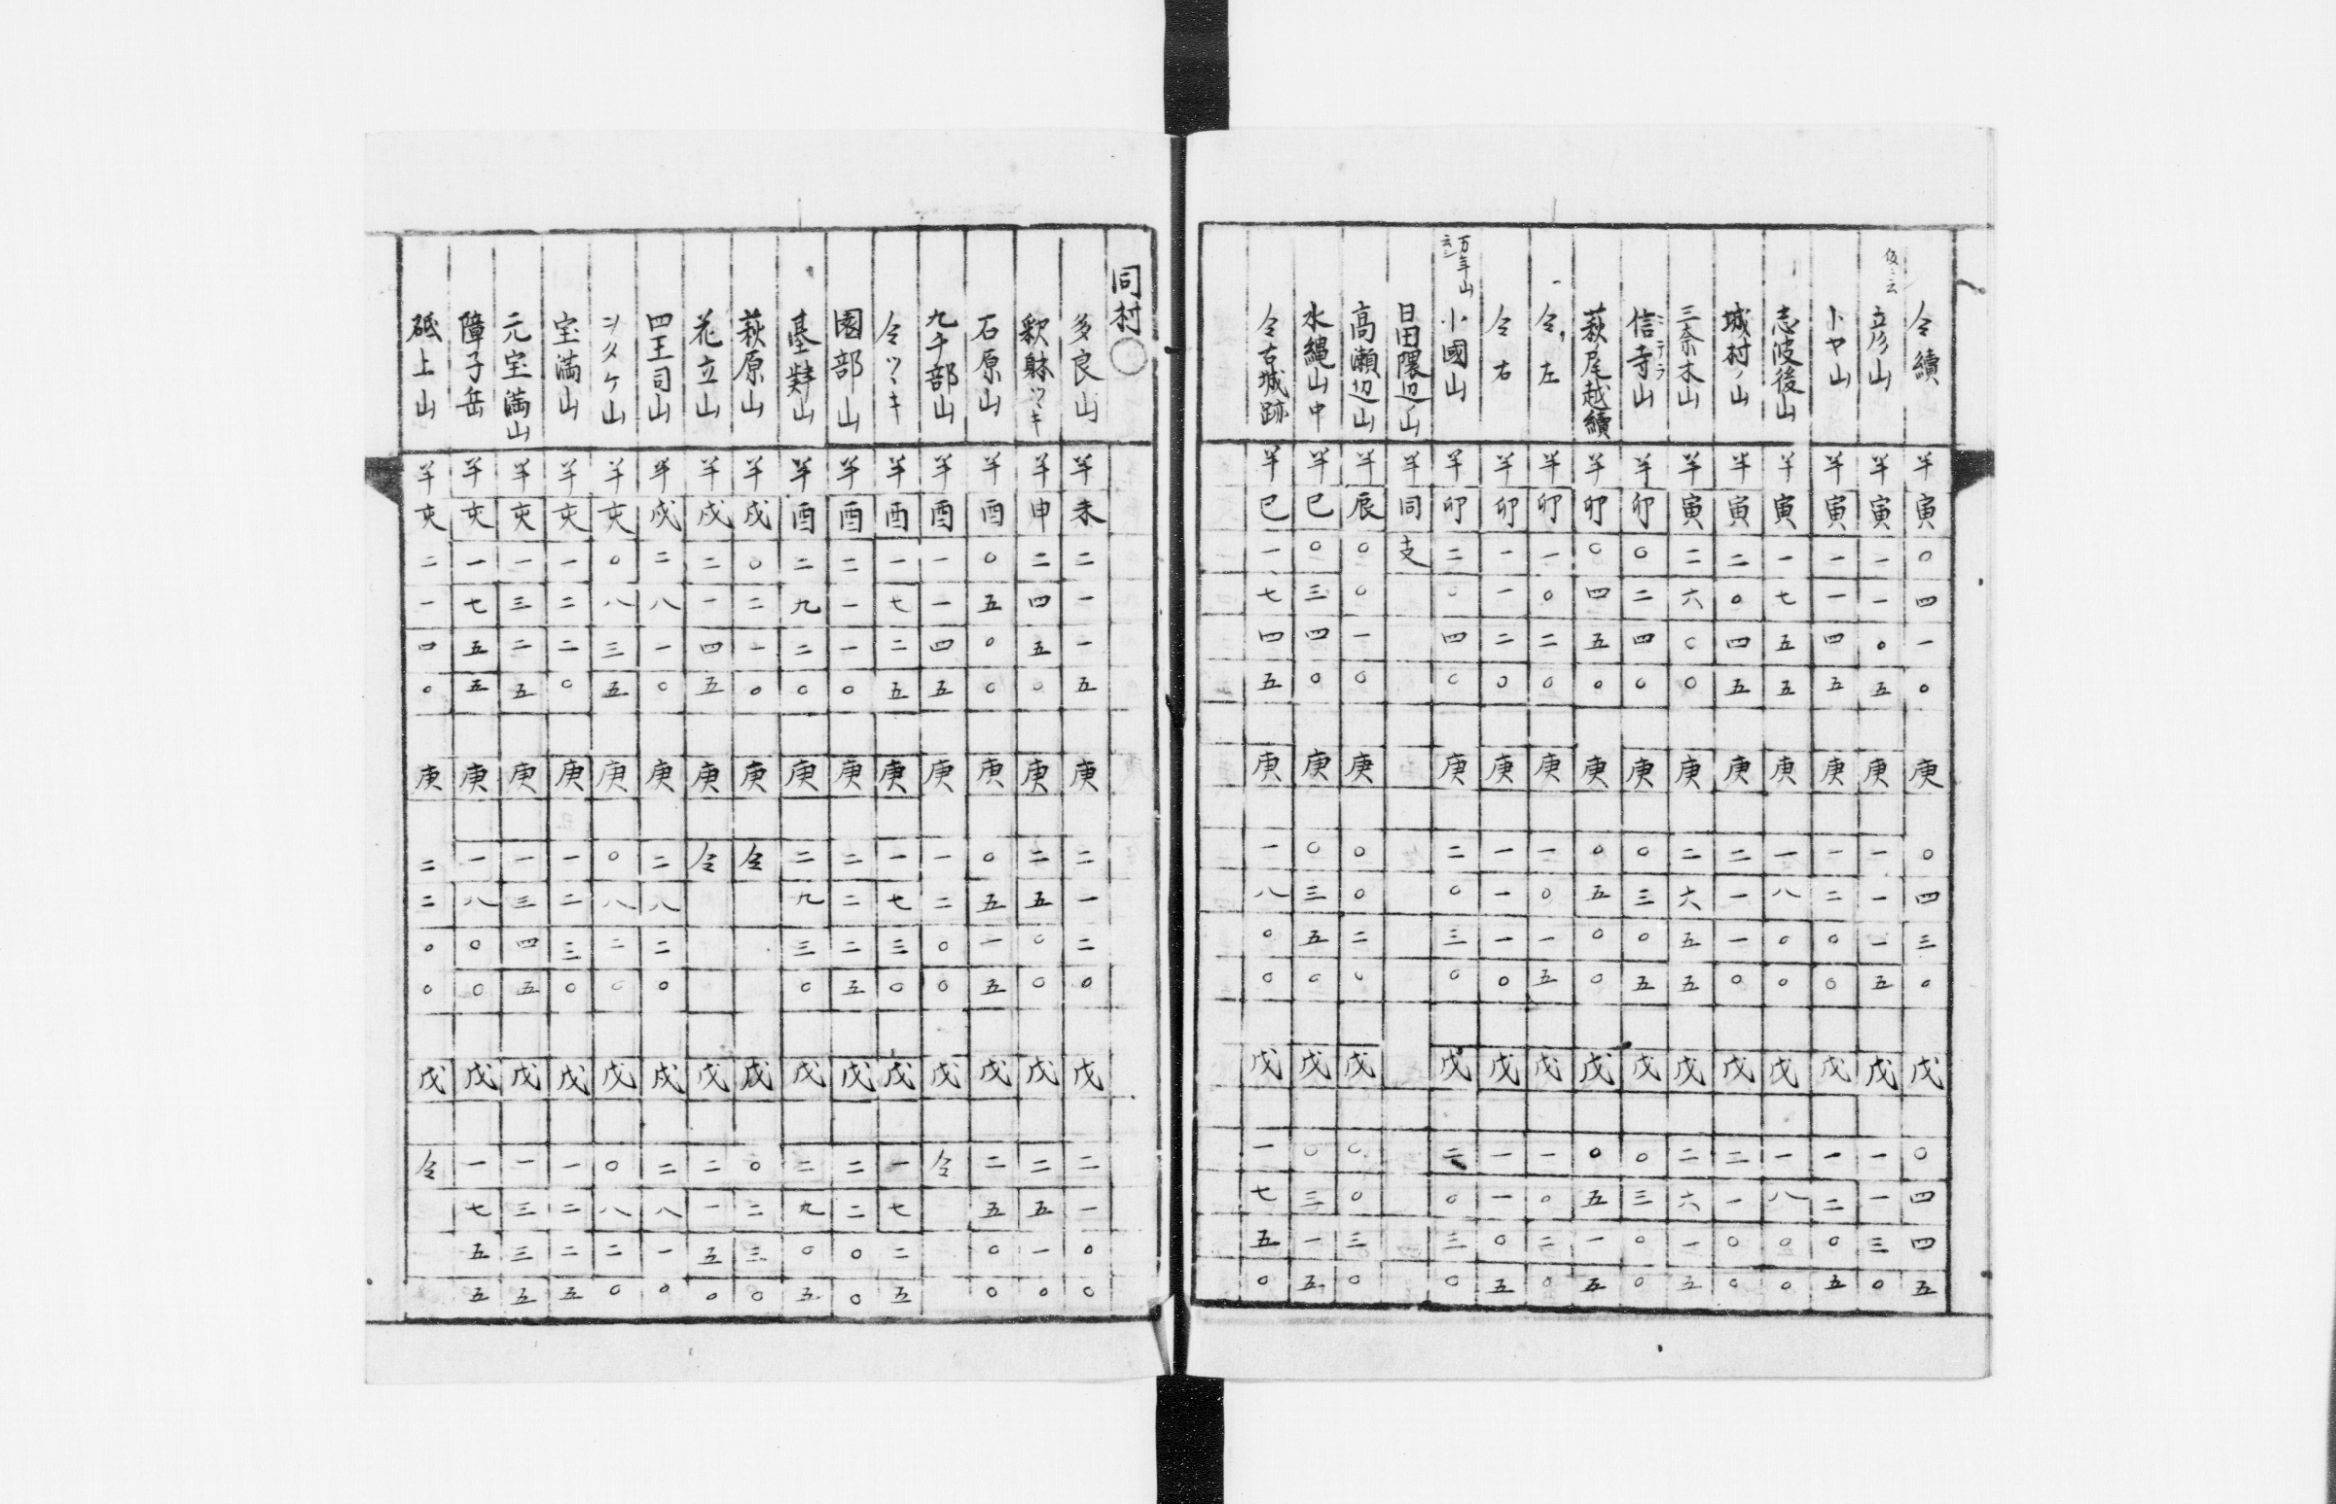 仝續 半寅 〇四一〇 庚 〇四三〇 戊 〇四四五
立彦山 半寅 一一〇五 庚 一一一五 戊 一一三〇
トヤ山 半寅 一一四五 庚 一二〇〇 戊 一二〇五
志波後山 半寅 一七五五 庚 一八〇〇 戊 一八〇〇
城村ノ山 半寅 二〇四五 庚 二一一〇 戊 二一〇〇
三奈木山 半寅 二六〇〇 庚 二六五五 戊 二六一五
信寺山 半卯 〇二四〇 庚 〇三〇五 戊 〇三〇〇
萩尾越續 半卯 〇四五〇 庚 〇五〇〇 戊 〇五一五
仝左 半卯 一〇二〇 庚 一〇一五 戊 一〇二〇
仝右 半卯 一一二〇 庚 一一一〇 戊 一一〇五
万年山
小國山 半卯 二〇四〇 庚 二〇三〇 戊 二〇三〇
日田隈辺ノ山 半同支
高瀬辺山 半辰 〇〇一〇 庚 〇〇二〇 戊 〇〇三〇
水縄山中 半巳 〇三四〇 庚 〇三五〇 戊 〇三一五
仝古城跡 半巳 一七四五 庚 一八〇〇 戊 一七五〇
同村〇
多良山 半未 二一一五 庚 二一二〇 戊 二一〇〇
釈躰ツヽキ 半申 二四五〇 庚 二五〇〇 戊 二五一〇
石原山 半酉 〇五〇〇 庚 〇五一五 戊 二五〇〇
九千部山 半酉 一一四五 庚 一二〇〇 戊 仝
仝ツヽキ 半酉 一七二五 庚 一七三〇 戊 一七二五
園部山 半酉 二一一〇 庚 二二二五 戊 二二〇〇
基肄山 半酉 二九二〇 庚 二九三〇 戊 二九〇五
萩原山 半戌 〇二一〇 庚 仝 戊 〇二三〇
花立山 半戌 二一四五 庚 仝 戊 二一五〇
四王司山 半戌 二八一〇 庚 二八二〇 戊 二八一〇
シタケ山 半亥 〇八三五 庚 〇八二〇 戊 〇八二〇
宝満山 半亥 一二二〇 庚 一二三〇 戊 一二二五
元宝満山 半亥 一三二五 庚 一三四五 戊 一三三五
障子岳 半亥 一七五五 庚 一八〇〇 戊 一七五五
砥上山 半亥 二一四〇 庚 二二〇〇 戊 仝